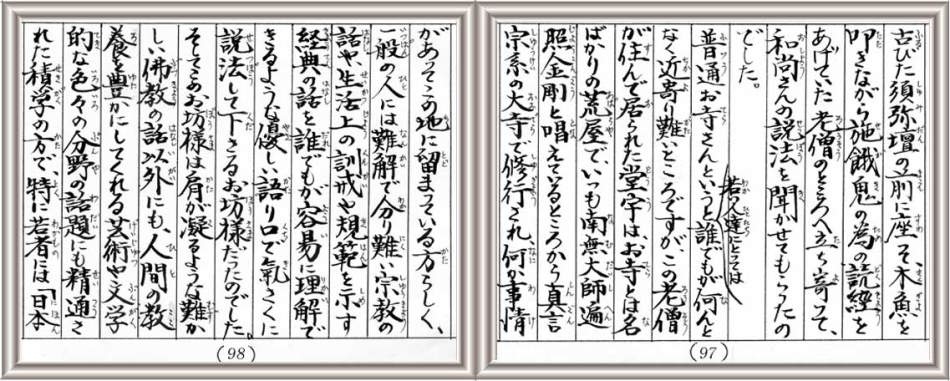 古びた須弥壇の前に座って、木魚を
叩きながら施餓鬼の為の読経を
あげていた老僧のところへ立ち寄って、
和尚さんの説法を聞かせてもらったの
でした。
若人達にとっては
普通、お寺さんというと誰でもが何んと
なく近寄り難いところですが、この老僧
が住んで居られた堂宇は、お寺とは名
ばかりの荒屋で、いつも南無大師遍
照金剛と唱えているところから真言
宗系の大寺で修行され、何か事情
(97)
があってこの地に留まっている方らしく、
一般の人には難解で分り難い宗教の
話や、生活上の訓戒や規範を示す
経典の話を誰でもが容易に理解で
きるような優しい語り口で氣さくに
説法して下さるお坊様だったのでした。
そしてこのお坊様は肩が凝るような難か
しい佛教の話以外にも、人間の教
養を豊かにしてくれる芸術や文学
的な色々の分野の話題にも精通さ
れた積学の方で、特に若者には「日本
(98)